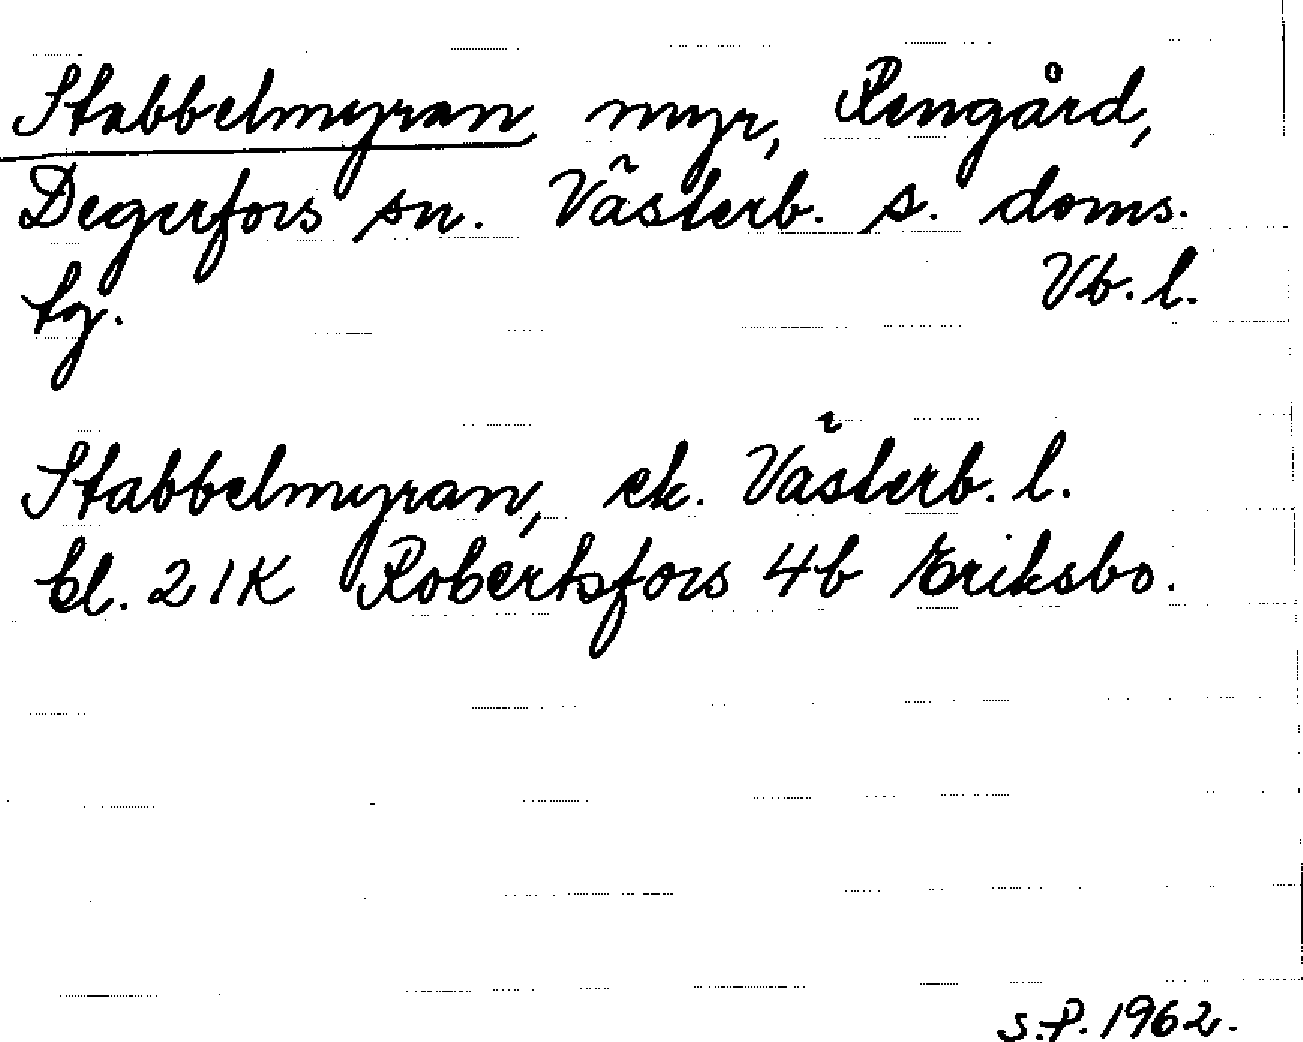 Stabbelmyran myr, Rengård,
Degerfors sn. Västerb. s. doms.
tg. Vb. l.
Stabbelmyran, ek. Västerb. l.
bl. 21K Robertsfors 4b Eriksbo.
S.P. 1962.